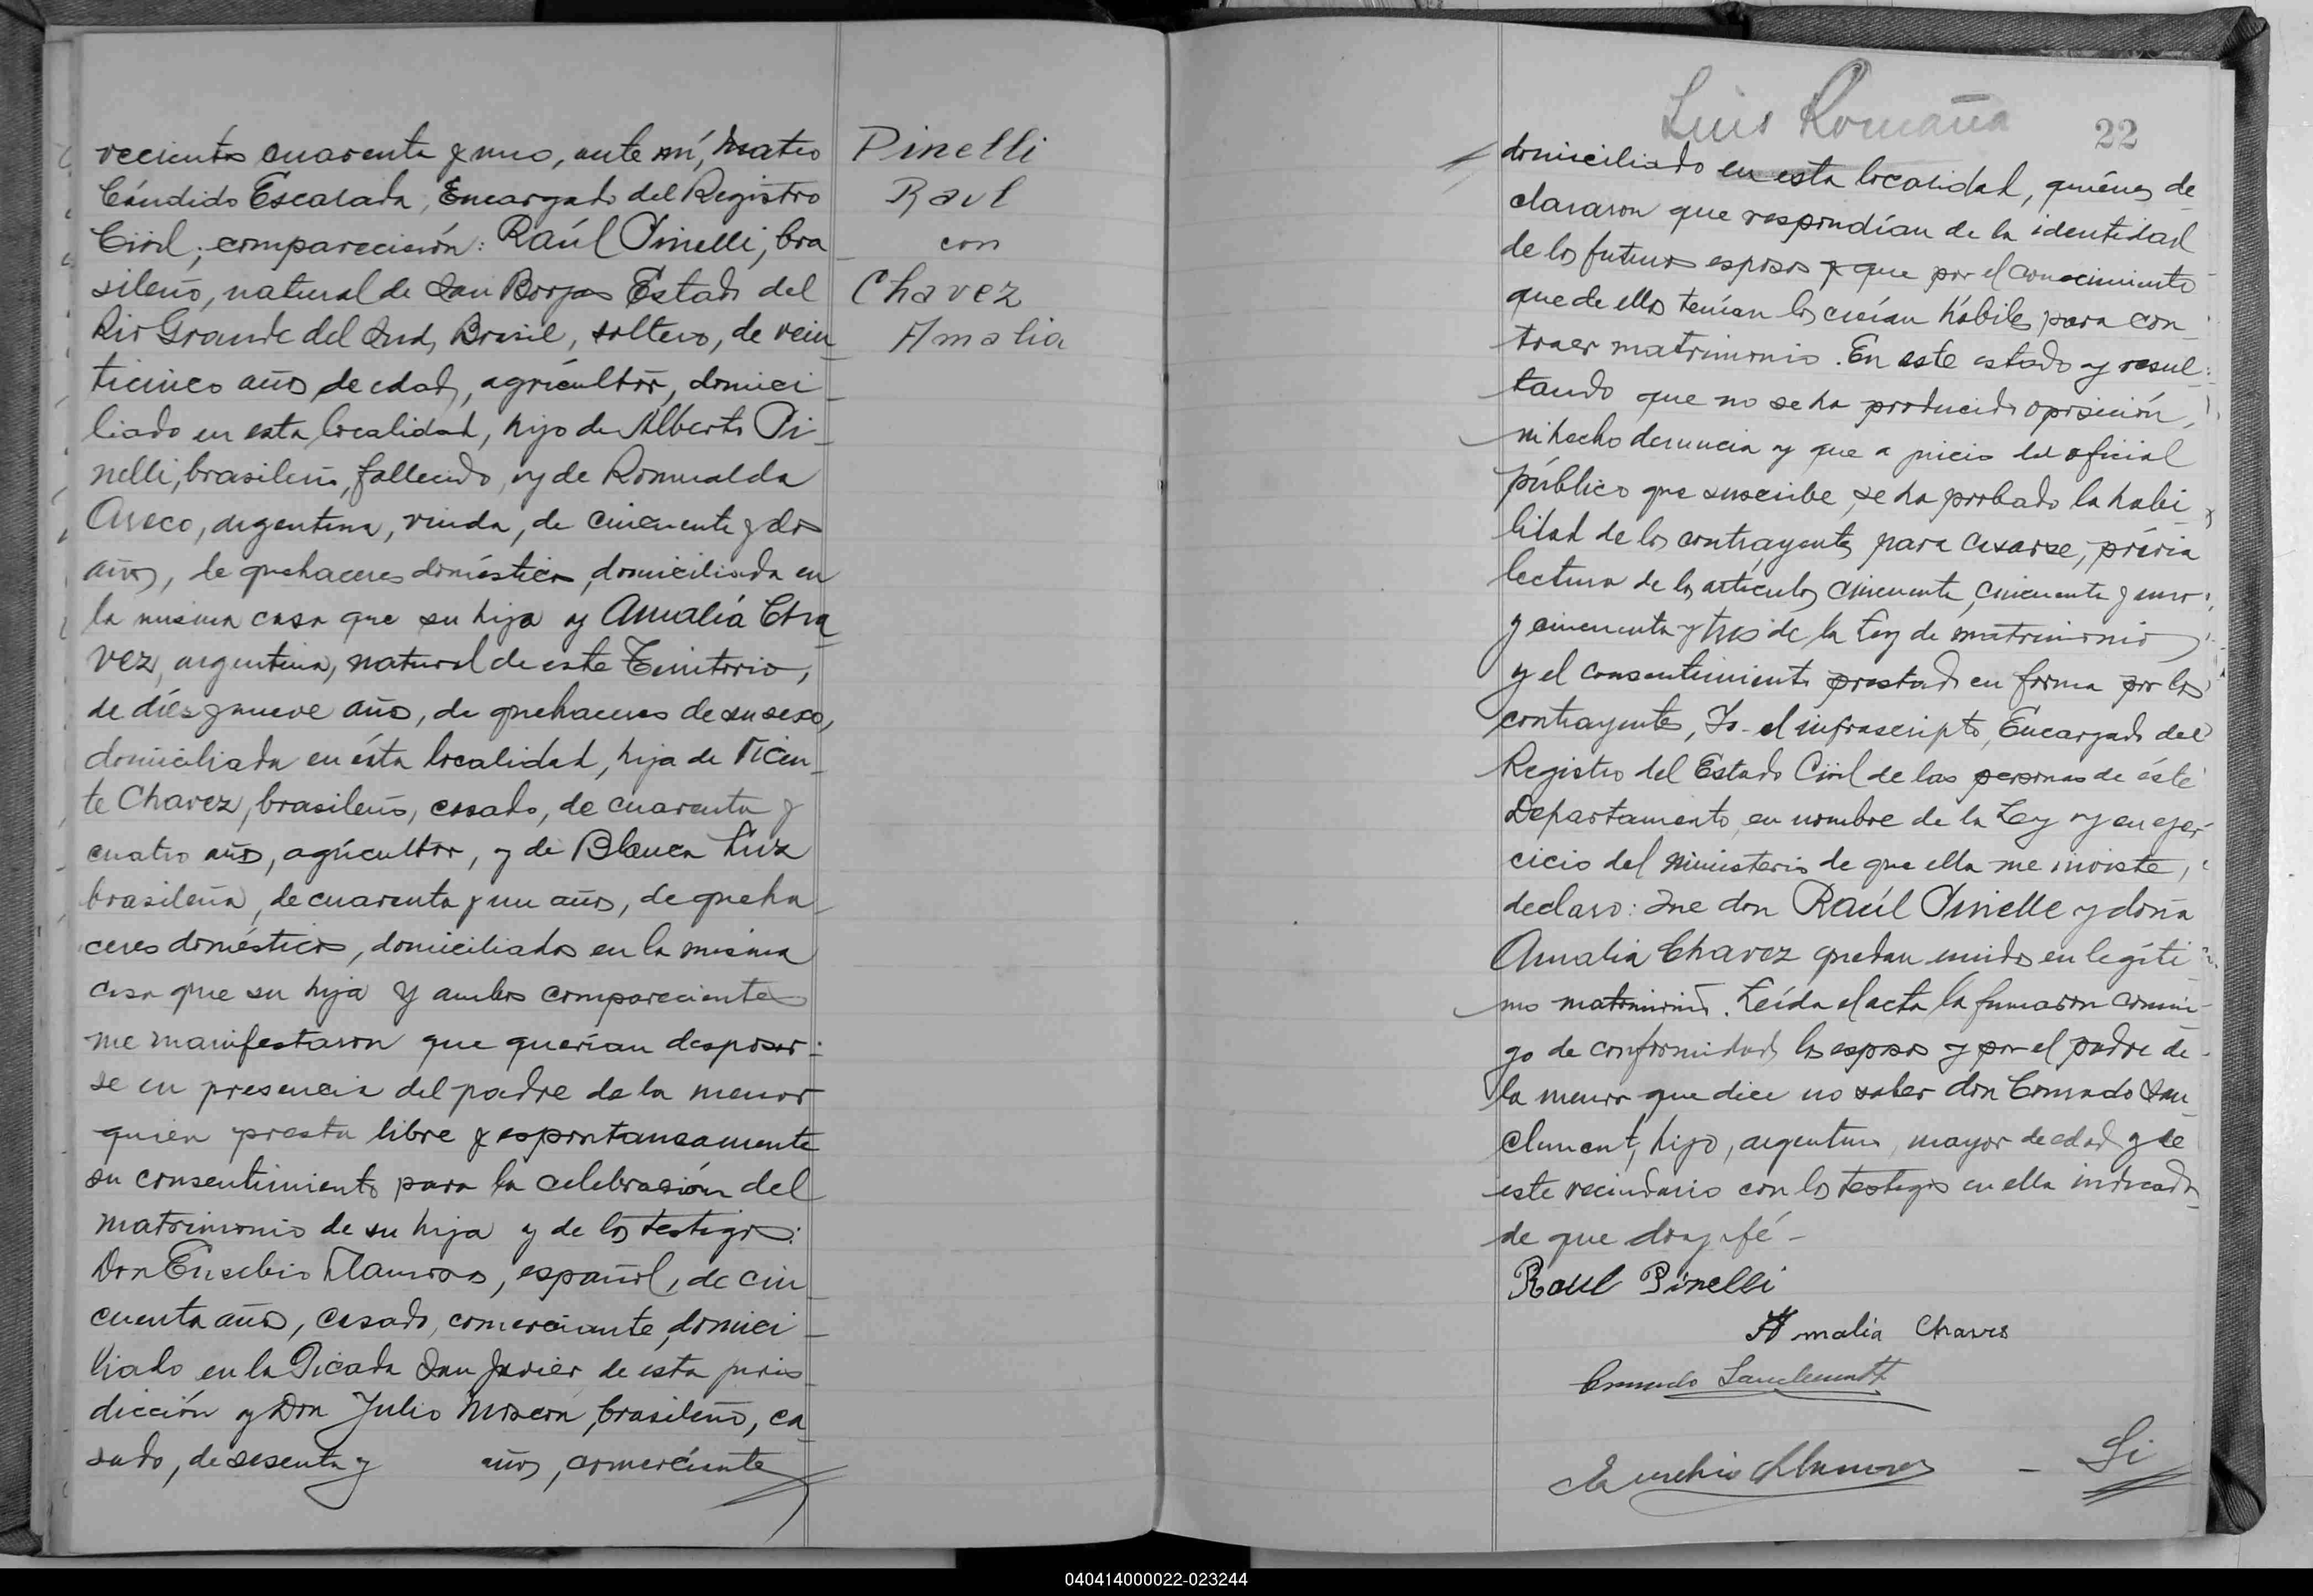 vecientos cuarenta y uno, ante mí, Mateo
Cándido Escalada, Encargado del Registro
Civil; comparecieron: Raúl Pinelli, bra
sileño, natural de San Borjas Estado del
Rio Grande del Sud, Brasil, soltero, de vein
ticinco años de edad, agricultor, domici
liado en esta localidad, hijo de Alberto Pi-
nelli, brasileño, fallecido, y de Romualda
argentina, viuda, de cincuenta y dos
años, de quehaceres domésticos, domiciliada en
la misma casa que su hijo y Amalia Cha
vez, argentina, natural de este Territorio,
de diés y nueve años, de quehaceres de su sexo,
domiciliada en ésta localidad, hija de Vicen-
te Chavez, brasileño, casado, de cuarenta y
cuatro años, agricultor, y de Blanca Luz
brasileña, de cuarenta y un años, de queha-
ceres domésticos, domiciliados en la misma
casa que su hija y ambos comparecientes
me manifestaron que querían desposar-
se en presencia del padre de la menor
quien presta libre y espontaneamente
su consentimiento para la celebrasión del
matrimonio de su hija y de los testigos:
Don Eusebio Llamosas, español, de cin
cuenta años, casado, comerciante, domici-
liado en la Picada San Javier de esta juris-
dicción y Don Julio brasileño, ca
sado, de sesenta y años, comerciante
Pinelli
Raul
con
Chavez
Amalia
Luis Romaña
22
domiciliado en esta localidad, quiénes de
clararon que respondían de la identidad
de los futuros esposos y que por el conocimiento
que de ellos tenían los creían hábiles para con
traer matrimonio. En este estado y resul
tando que no se ha producido oposición,
ni hecho denuncia y que a juicio del oficial
público que suscribe, se ha probado la habi
lidad de los contrayentes para casarse, prévia
lectura de los artículos cincuenta, cincuenta y uno
y cincuenta y tres de la Ley de matrimonio
y el consentimiento prestado en forma por los
contrayentes, Yo el infrascripto, Encargado del
Registro del Estado Civil de las personas de éste
Departamento, en nombre de la Ley y en ejer
cicio del ministerio de que ella me inviste,
declaro: Que don Raúl Pinelli y doña
Amalia Chavez quedan unidos en legíti
mo matrimonio. Leída el acta la firmaron conmi-
go de conformidad, los esposos y por el padre de
la menor que dice no saber don Conrado San
clement, hijo, argentino, mayor de edad y de
este vecindario con los testigos en ella indicados
de que doy fé-
Raul Pinelli
Amalia Chaves
Conrado Sanclement
Eusebio Llamosas